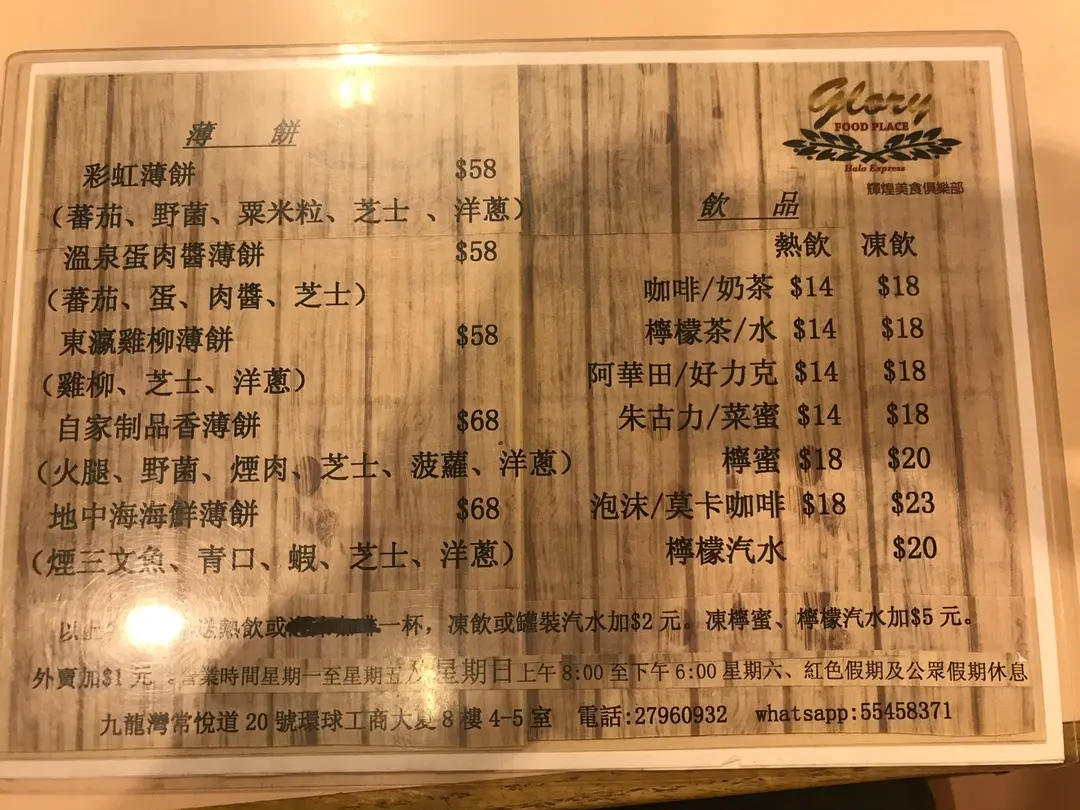 Glory
FOOD PLACE
Halo Express
輝煌美食俱樂部
薄 餅
彩虹薄餅 $58
(蕃茄、野菌、粟米粒、芝士 、洋蔥)
溫泉蛋肉醬薄餅 $58
(蕃茄、蛋、肉醬、芝士)
東瀛雞柳薄餅 $58
(雞柳、芝士、洋蔥)
自家制品香薄餅 $68
(火腿、野菌、煙肉、芝士、菠蘿、洋蔥)
地中海海鮮薄餅 $68
(煙三文魚、青口、蝦、芝士、洋蔥)
飲 品
熱飲 凍飲
咖啡/奶茶 $14 $18
檸檬茶/水 $14 $18
阿華田/好力克 $14 $18
朱古力/菜蜜 $14 $18
檸蜜 $18 $20
泡沫/莫卡咖啡 $18 $23
檸檬汽水 $20
以上 送熱飲或 一杯，凍飲或罐裝汽水加$2 元。凍檸蜜、檸檬汽水加$5 元。
外賣加$1 元 。營業時間星期一至星期五及星期日上午 8:00 至下午 6:00 星期六、紅色假期及公眾假期休息
九龍灣常悅道 20 號環球工商大廈 8 樓 4-5 室 電話:27960932 whatsapp:55458371